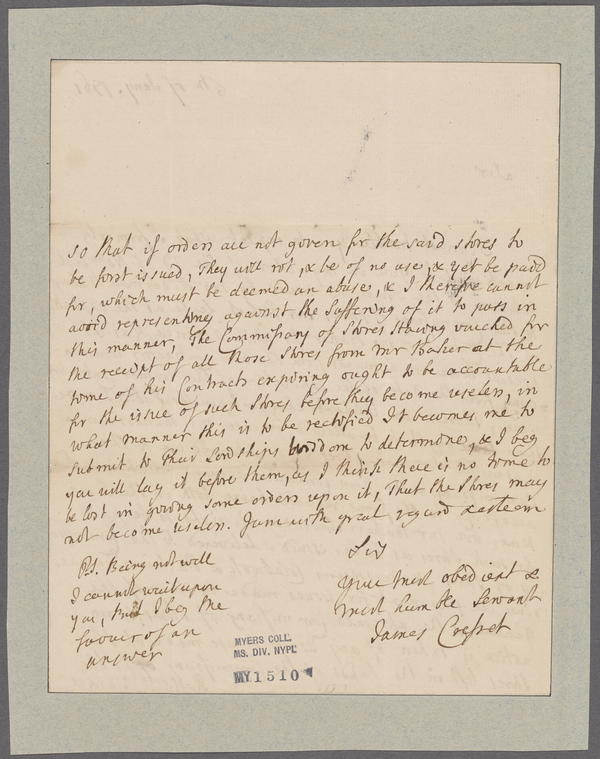 so that if orders are not given for the said stores to
be first issued, They will rot, & be of no use, & yet be paid
for, which must be deemed an abuse, & I therefore cannot
avoid representing against the suffering of it to pass in
this manner, The Commissary of Stores having vouched for
the receipt of all those Stores from Mr Baker at the
time of his Contracts expiring ought to be accountable
for the issue of such Stores before they become useless, in
what manner this is to be rectified It becomes me to
submit to their Lordships wisdom to determine, & I beg
you will lay it before them, as I think there is no time to
be lost in giving some orders upon it, That the Stores may
not become useless. I am with great regard & esteem
Sir
Your most obedient &
most humble Servant
James Cresset
P.S. Being not well
I cannot wait upon
you, but I beg the
favour of an
answer
MYERS COLL.
MS. DIV. NYPL
MY1510